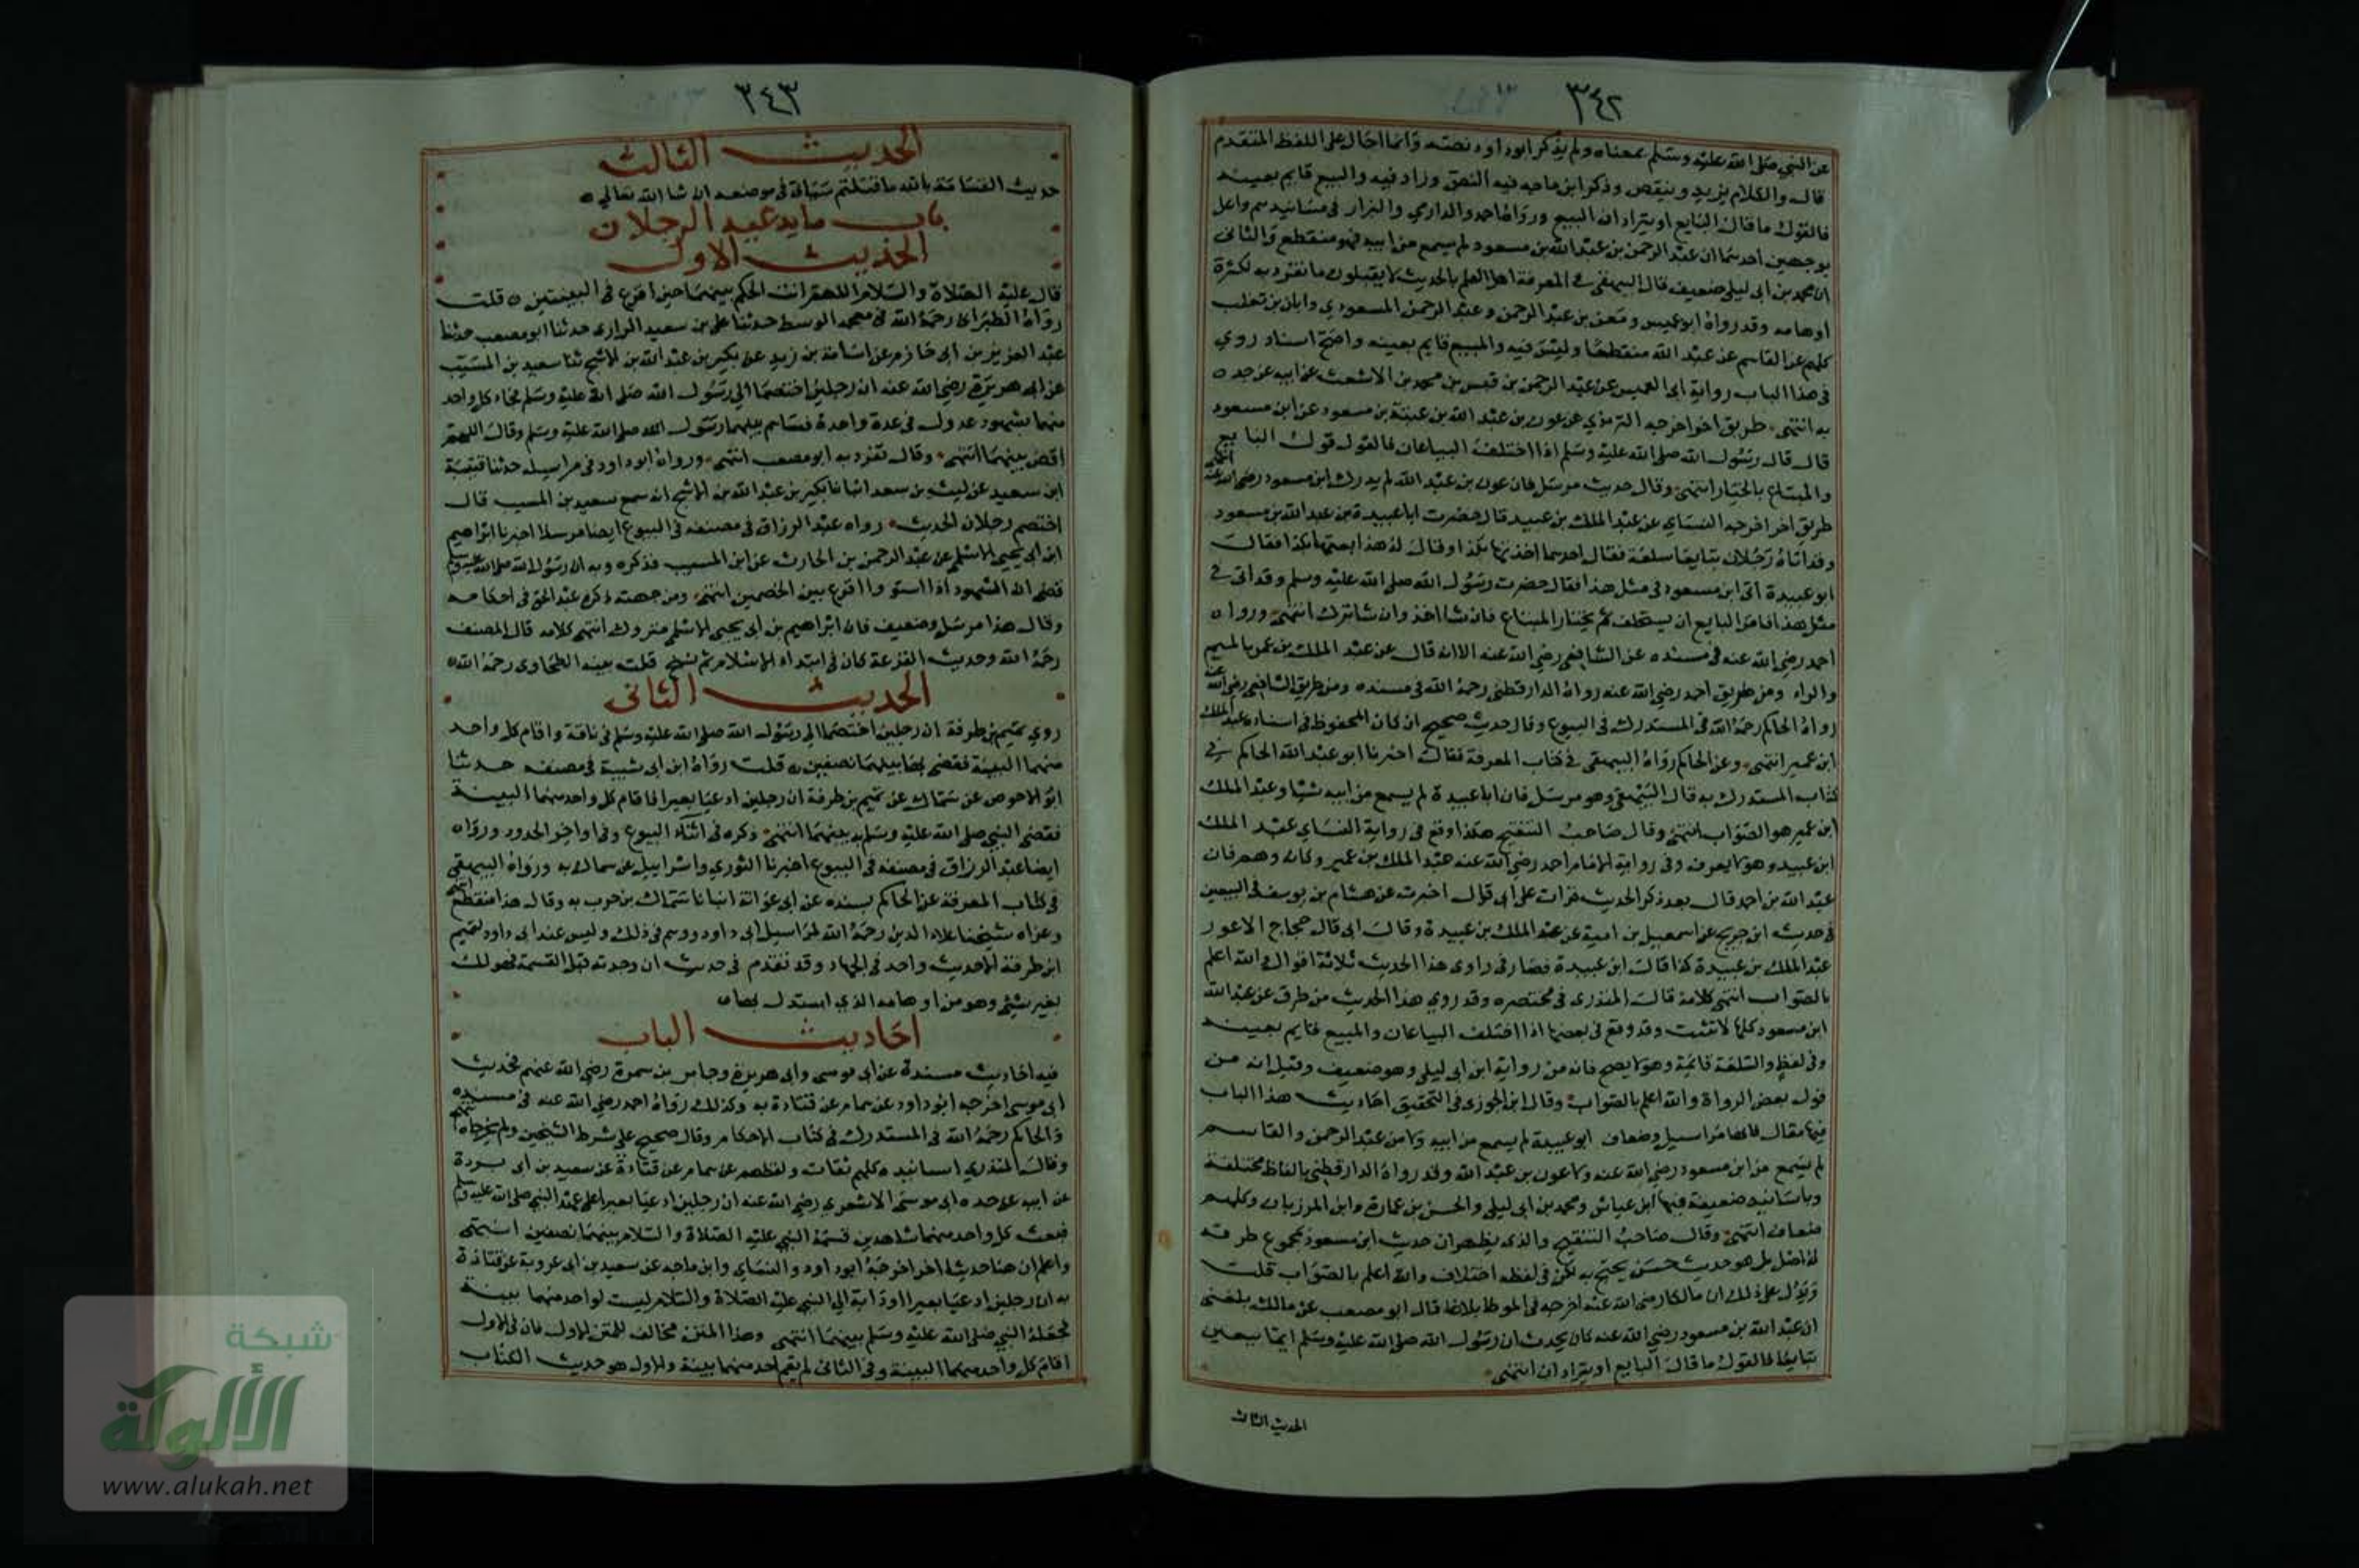 ٣٤٢
عن النبي صلى الله عليه وسلم بمعناه ولم يذكر ابو داود نصه وانما احال على اللفظ المتقدم
قال والكلام يزيد وينقص وذكر ابن ماجه فيه النص وزاد فيه والبيع قايم بعينه
فالقول ما قال البايع او يترادان البيع ورواه احمد والدارمي والبزار في مسانيدهم واعل
بوجهين احدهما ان عبد الرحمن بن عبد الله بن مسعود لم يسمع من ابيه فهو منقطع والثاني
ان محمد بن ابي ليلى ضعيف قال البيهقي في المعرفة اهل العلم بالحديث لا يقبلون ما تفرد به لكثرة
اوهامه وقد رواه ابو عميس ومعن بن عبد الرحمن وعبد الرحمن المسعودي وابان بن تغلب
كلهم عن القاسم عن عبد الله منقطعا وليس فيه والمبيع قايم بعينه واصح اسناد روي
في هذا الباب رواية ابي العميس عن عبد الرحمن بن قيس بن محمد بن الاشعث عن ابيه عن جده ه
به انتهى طريق اخر اخرجه الترمذي عن عون بن عبد الله بن عتبة بن مسعود عن ابن مسعود
قال قال رسول الله صلى الله عليه وسلم اذا اختلف البيعان فالقول قول البايع
والمبتاع بالخيار انتهى وقال حديث مرسل فان عون بن عبد الله لم يدرك ابن مسعود رضي الله عنه انتهى
طريق اخر اخرجه النساي عن عبد الملك بن عبيد قال حضرت ابا عبيدة بن عبد الله بن مسعود
وقد اتاه رجلان تبايعا سلعة فقال احدهما اخذتها بكذا وقال له هذا بعتها بكذا فقال
ابو عبيدة اتى ابن مسعود في مثل هذا فقال حضرت رسول الله صلى الله عليه وسلم وقد اتى في
مثل هذا فامر البايع ان يستحلف ثم يختار المبتاع فان شا اخذ وان شا ترك انتهى ورواه
احمد رضي الله عنه في مسنده عن الشافعي رضي الله عنه الا انه قال عن عبد الملك بن عمر بالميم
والراء ومن طريق احمد رضي الله عنه رواه الدارقطني رحمه الله في مسنده ومن طريق الشافعي رضي الله عنه
رواه الحاكم رحمه الله في المستدرك في البيوع وقال حديث صحيح ان كان المحفوظ في اسناده عبد الملك
ابن عمير انتهى وعن الحاكم رواه البيهقي في كتاب المعرفة فقال اخبرنا ابو عبد الله الحاكم في
كتاب المستدرك به قال البيهقي وهو مرسل فان ابا عبيدة لم يسمع من ابيه شيا وعبد الملك
ابن عمير هو الصواب انتهى وقال صاحب التنقيح هكذا وقع في رواية النساي عبد الملك
ابن عبيد وهو لا يعرف وفي رواية الامام احمد رضي الله عنه عبد الملك بن عمير وكانه وهم فان
عبد الله بن احمد قال بعد ذكر الحديث قرات على ابي قال اخبرت عن هشام بن يوسف في البيعين
في حديث ابن جريج عن اسمعيل بن امية عن عبد الملك بن عبيدة وقال ابي قال حجاج الاعور
عبد الملك بن عبيدة كذا قال ابن عبيدة فصار في راوي هذا الحديث ثلاثة اقوال والله اعلم
بالصواب انتهى كلامه قال المنذري في مختصره وقد روي هذا الحديث من طرق عن عبد الله
ابن مسعود كلها لا تثبت وقد وقع في بعضها اذا اختلف البيعان والمبيع قايم بعينه
وفي لفظ والسلعة قائمة وهو لا يصح فانه من رواية ابن ابي ليلى وهو ضعيف وقيل انه من
قول بعض الرواة والله اعلم بالصواب وقال ابن الجوزي في التحقيق احاديث هذا الباب
فيها مقال فانها مراسيل وضعاف ابو عبيدة لم يسمع من ابيه ولا من عبد الرحمن والقاسم
لم يسمع من ابن مسعود رضي الله عنه ولا عون بن عبد الله وقد رواه الدارقطني بالفاظ مختلفة
وباسانيد ضعيفة فيها ابن عياش ومحمد بن ابي ليلى والحسن بن عمارة وابن المرزبان وكلهم
ضعاف انتهى وقال صاحب التنقيح والذي يظهر ان حديث ابن مسعود بمجموع طرقه
له اصل بل هو حديث حسن يحتج به لكن في لفظه اختلاف والله اعلم بالصواب قلت
ويدل على ذلك ان مالكا رضي الله عنه اخرجه في الموطا بلاغا قال ابو مصعب عن مالك بلغني
ان عبد الله بن مسعود رضي الله عنه كان يحدث ان رسول الله صلى الله عليه وسلم ايما بيعين
تبايعا فالقول ما قال البايع او يترادان انتهى
الحديث الثالث
٣٤٣
الحديث الثالث
حديث القسامة بالله ما قتلتم سياتي في موضعه ان شا الله تعالى ه
باب ما يدعيه الرجلان
الحديث الاول
قال عليه الصلاة والسلام اللهم انت الحكم بينهما حين اقرع في البينتين ه قلت
رواه الطبراني رحمه الله في معجمه الوسط حدثنا علي بن سعيد الرازي حدثنا ابو مصعب حدثنا
عبد العزيز بن ابي حازم عن اسامة بن زيد عن بكير بن عبد الله بن الاشج ثنا سعيد بن المسيب
عن ابي هريرة رضي الله عنه ان رجلين اختصما الي رسول الله صلى الله عليه وسلم فجاء كل واحد
منهما بشهود عدول في عدة واحدة فساهم بينهما رسول الله صلى الله عليه وسلم وقال اللهم
اقض بينهما انتهى وقال تفرد به ابو مصعب انتهى ورواه ابو داود في مراسيله حدثنا قتيبة
ابن سعيد عن ليث بن سعد انبانا بكير بن عبد الله بن الاشج انه سمع سعيد بن المسيب قال
اختصم رجلان الحديث رواه عبد الرزاق في مصنفه في البيوع ايضا مرسلا اخبرنا ابراهيم
ابن ابي يحيى الاسلمي عن عبد الرحمن بن الحارث عن ابن المسيب فذكره وبه ان رسول الله صلى الله عليه وسلم
قضى ان الشهود اذا استووا اقرع بين الخصمين انتهى ومن جهته ذكره عبد الحق في احكامه
وقال هذا مرسل وضعيف فان ابراهيم بن ابي يحيى الاسلمي متروك انتهى كلامه قال المصنف
رحمه الله وحديث القرعة كان في ابتداء الاسلام ثم نسخ قلت بينه الطحاوي رحمه الله ه
الحديث الثاني
روي تميم بن طرفة ان رجلين اختصما الي رسول الله صلى الله عليه وسلم في ناقة واقام كل واحد
منهما البينة فقضى بها بينهما نصفين ه قلت رواه ابن ابي شيبة في مصنفه حدثنا
ابو الاحوص عن سماك عن تميم بن طرفة ان رجلين ادعيا بعيرا فاقام كل واحد منهما البينة
فقضى النبي صلى الله عليه وسلم به بينهما انتهى ذكره في اثناء البيوع وفي اواخر الحدود ورواه
ايضا عبد الرزاق في مصنفه في البيوع اخبرنا الثوري واسرائيل عن سماك به ورواه البيهقي
في كتاب المعرفة عن الحاكم بسنده عن ابي عوانة انبانا سماك بن حرب به وقال هذا منقطع انتهى
وعزاه شيخنا علاء الدين رحمه الله لمراسيل ابي داود ووهم في ذلك وليس عند ابي داود لتميم
ابن طرفة الا حديث واحد في الجهاد وقد تقدم في حديث ان وجدته قبل القسمة فهو لك
بغير شيء وهو من اوهامه الذي استدل بها ه
احاديث الباب
فيه احاديث مسندة عن ابي موسى وابي هريرة وجابر بن سمرة رضي الله عنهم فحديث
ابي موسى اخرجه ابو داود عن همام عن قتادة به وكذلك رواه احمد رضي الله عنه في مسنده
والحاكم رحمه الله في المستدرك في كتاب الاحكام وقال صحيح على شرط الشيخين ولم يخرجاه انتهى
وقال المنذري اسانيده كلهم ثقات ولفظهم عن همام عن قتادة عن سعيد بن ابي بردة
عن ابيه عن جده ابي موسى الاشعري رضي الله عنه ان رجلين ادعيا بعيرا على عهد النبي صلى الله عليه وسلم
فبعث كل واحد منهما شاهدين فقسمه النبي عليه الصلاة والسلام بينهما نصفين انتهى
واعلم ان هنا حديثا اخر اخرجه ابو داود والنساي وابن ماجه عن سعيد بن ابي عروبة عن قتادة
به ان رجلين ادعيا بعيرا او دابة الي النبي عليه الصلاة والسلام ليست لواحد منهما بينة
فجعله النبي صلى الله عليه وسلم بينهما انتهى وهذا المتن مخالف للمتن الاول فان في الاول
اقام كل واحد منهما البينة وفي الثاني لم يقم احد منهما بينة والاول هو حديث الكتاب
شبكة
الألوكة
www.alukah.net